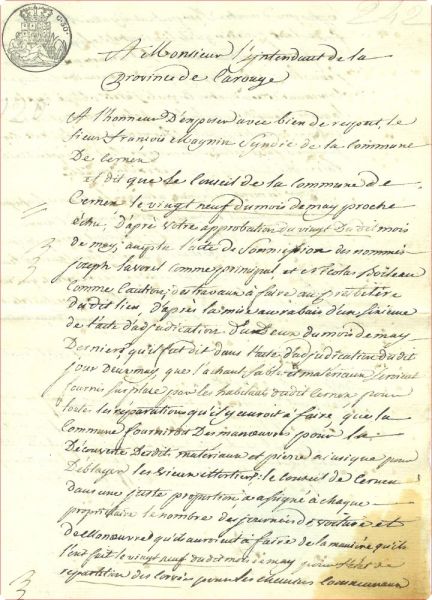 A Monsieur l'intendant de la
Province de Carouge
A l'honneur D'exposer avec bien de respect, le
sieur François Magnin Syndic de la Commune
De Cernex
et dit que le Conseil de la Commune de
Cernex le vingt neuf du mois de may proche
échu, D'apré votre approbation du vingt du dit mois
de may, l'acte de Sommission des nommés
joseph lavorel comme principal et Nicolas Boileau
Comme Caution, des travaux à faire au presbitère
du dit lieu, D'après la mise au rabais d'un sixieme
de l'acte d'adjudication D'un Deux du mois de may
Dernier, qu'il fut dit dans l'acte d'adjudication du dit
jour Deux may, que la chaut sable et matériaux seroient
fournis sur place par les habitants du dit Cernex pour
toute les réparations qu'il y auroit à faire que la
Commune fourniroit Des manœuvres pour la
Découverte Des dits matériaux et pierre ainsique pour
Deblayer les vieux : le conseil de Cernex
dans une juste proportion a assigné à chaque
propriétaire le nombre des journées de voiture et
de Manœuvre qu'ils auroient à faire de la manière qu'ils
l'ont fait le vingt neuf du dit mois de may pour l'état de
repartition des Corvées pour les chemins Communaux